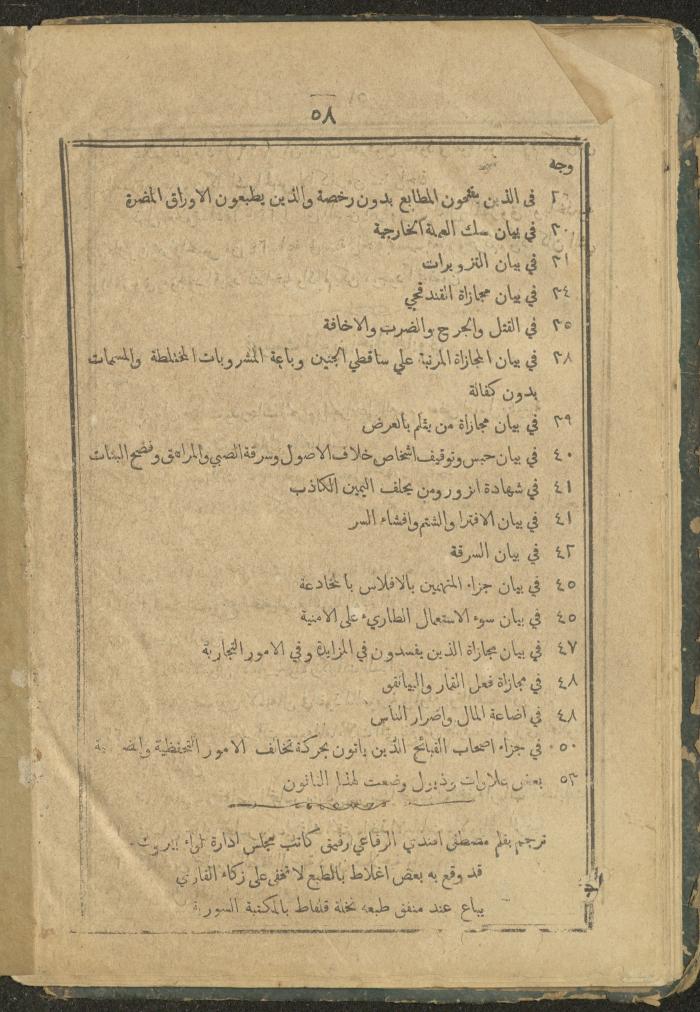 ٥٨
وجه
في الذين يفتحون المطابع بدون رخصة والذين يطبعون الاوراق المضرة
٣٠ في بيان سك العملة الخارجية
٣١ في بيان التزويرات
٣٤ في بيان مجازاة القندقجي
٣٥ في القتل والجرح والضرب والاخافة
٣٨ في بيان المجازاة المرتبة علي ساقطي الجنين وباعة المشروبات المختلطة والمسمات
بدون كفالة
٣٩ في بيان مجازاة من يثلم بالعرض
٤٠ في بيان حبس وتوقيف اشخاص خلاف الاصول وسرقة الصبي والمراهق وفضح البنات
٤١ في شهادة الزور ومن يحلف اليمين الكاذب
٤١ في بيان الافترا والشتم وافشاء السر
٤٢ في بيان السرقة
٤٥ في بيان جزاء المتهمين بالافلاس بالمخادعة
٤٥ في بيان سوء الاستعمال الطاريء على الامنية
٤٧ في بيان مجازاة الذين يفسدون في المزايدة وفي الامور التجارية
٤٨ في مجازاة فعل القار والبيانقو
٤٨ في اضاعة المال واضرار الناس
٥٠ في جزاء اصحاب القبائح الذين ياتون بحركة تخالف الامور التحفظية
٥٣ بعض علاوات وذيول وضعت لهذا القانون
ترجم بقلم مصطفى افندي الرفاعي رفيق كاتب مجلس ادارة لواء بيروت
قد وقع به بعض اغلاط بالطبع لا تخفى على زكاء القاري
يباع عند منفق طبعه نخلة قلفاط بالمكتبة السورية